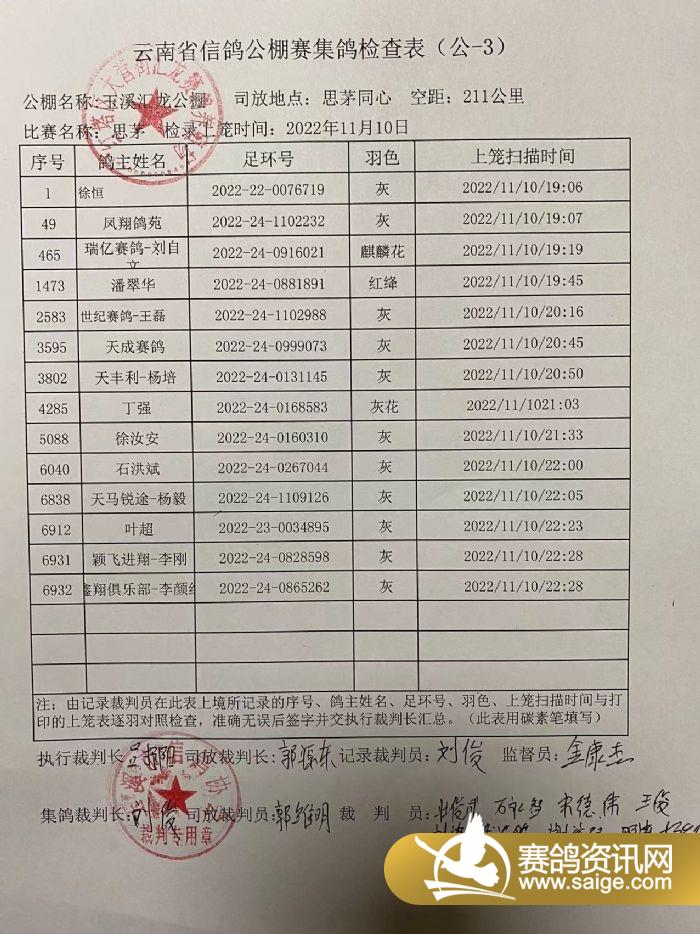 云南省信鸽公棚赛集鸽检查表（公-3）
公棚名称：玉溪汇龙公棚 司放地点：思茅同心 空距：211公里
比赛名称：思茅 检录上笼时间：2022年11月10日
序号 鸽主姓名 足环号 羽色 上笼扫描时间
1 徐恒 2022-22-0076719 灰 2022/11/10/19:06
49 凤翔鸽苑 2022-24-1102232 灰 2022/11/10/19:07
465 瑞亿赛鸽-刘自文 2022-24-0916021 麒麟花 2022/11/10/19:19
1473 潘翠华 2022-24-0881891 红绛 2022/11/10/19:45
2583 世纪赛鸽-王磊 2022-24-1102988 灰 2022/11/10/20:16
3595 天成赛鸽 2022-24-0999073 灰 2022/11/10/20:45
3802 天丰利-杨培 2022-24-0131145 灰 2022/11/10/20:50
4285 丁强 2022-24-0168583 灰花 2022/11/1021:03
5088 徐汝安 2022-24-0160310 灰 2022/11/10/21:33
6040 石洪斌 2022-24-0267044 灰 2022/11/10/22:00
6838 天马锐途-杨毅 2022-24-1109126 灰 2022/11/10/22:05
6912 叶超 2022-23-0034895 灰 2022/11/10/22:23
6931 颖飞进翔-李刚 2022-24-0828598 灰 2022/11/10/22:28
6932 鑫翔俱乐部-李颜 2022-24-0865262 灰 2022/11/10/22:28
注：由记录裁判员在此表上境所记录的序号、鸽主姓名、足环号、羽色、上笼扫描时间与打
印的上笼表逐羽对照检查，准确无误后签字并交执行裁判长汇总。（此表用碳素笔填写）
执行裁判长 司放裁判长：郭振东 记录裁判员：刘俊 监督员：金康杰
集鸽裁判长： 司放裁判员：郭绍明 裁 判 员：
裁判专用章
赛鸽资讯网
www.saige.com